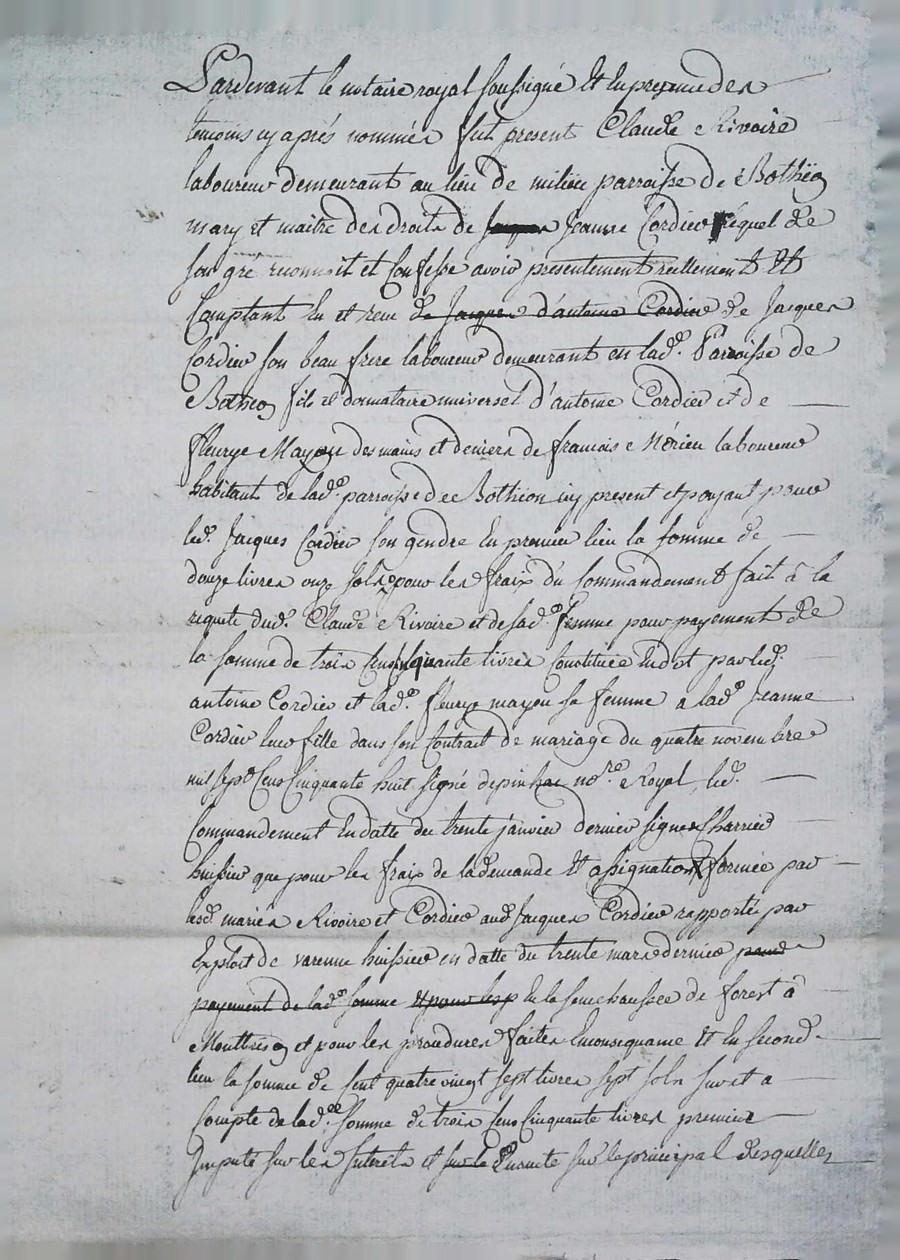 Pardevant le notaire royal soussigné Et En presence des
temoins cy après nommés fut present Claude Rivoire
laboureur demeurant au lieu de milieu parroisse de Bothéon
mary et maitre des droits de Jacques Jeanne Cordier lequel de
son gré reconnoit et Confesse avoir presentement reellement Et
Comptant Eu et receu de Jacques d'antoine Cordier de Jacques
Cordier son beau frere laboureur demeurant en lad.e Parroisse de
Botheon fils et donnataire universel d'antoine Cordier et de
fleurye Mayou des mains et deniers de francois Mérieu laboureur
habitant de lad.e parroisse de Botheon icy present et payant pour
led. Jacques Cordier son gendre En premier lieu la somme de
douze livres onze sols pour les fraix du Commandement fait à la
requete dud. Claude Rivoire et de sad.e femme pour payement de
la somme de trois Cens cinquante livres Constituée En dot par led.
antoine Cordier et lad.e fleurye mayou sa femme a lad.e Jeanne
Cordier leur fille dans son Contrat de mariage du quatre novembre
mil sept Cens Cinquante huit signé depinhac no.re Royal, led.
Commandement En datte du trente janvier dernier signé Charrier
huissier que pour les fraix de la demande Et assignation formée par
lesd. mariés Rivoire et Cordier aud. Jacques Cordier rapporté par
Exploit de varenne huissier en datte du trente mars dernier pour
payement de lad.e somme et pour les p En la senechaussée de forest à
Montbrison et pour les procedures faites En consequance Et En second
lieu la somme de Cent quatre vingt sept livres sept sols sur et a
Compte de lad.e somme de trois Cens Cinquante livres premier
Imputé sur les Interets et sur le Ensuite sur le principal desquelles